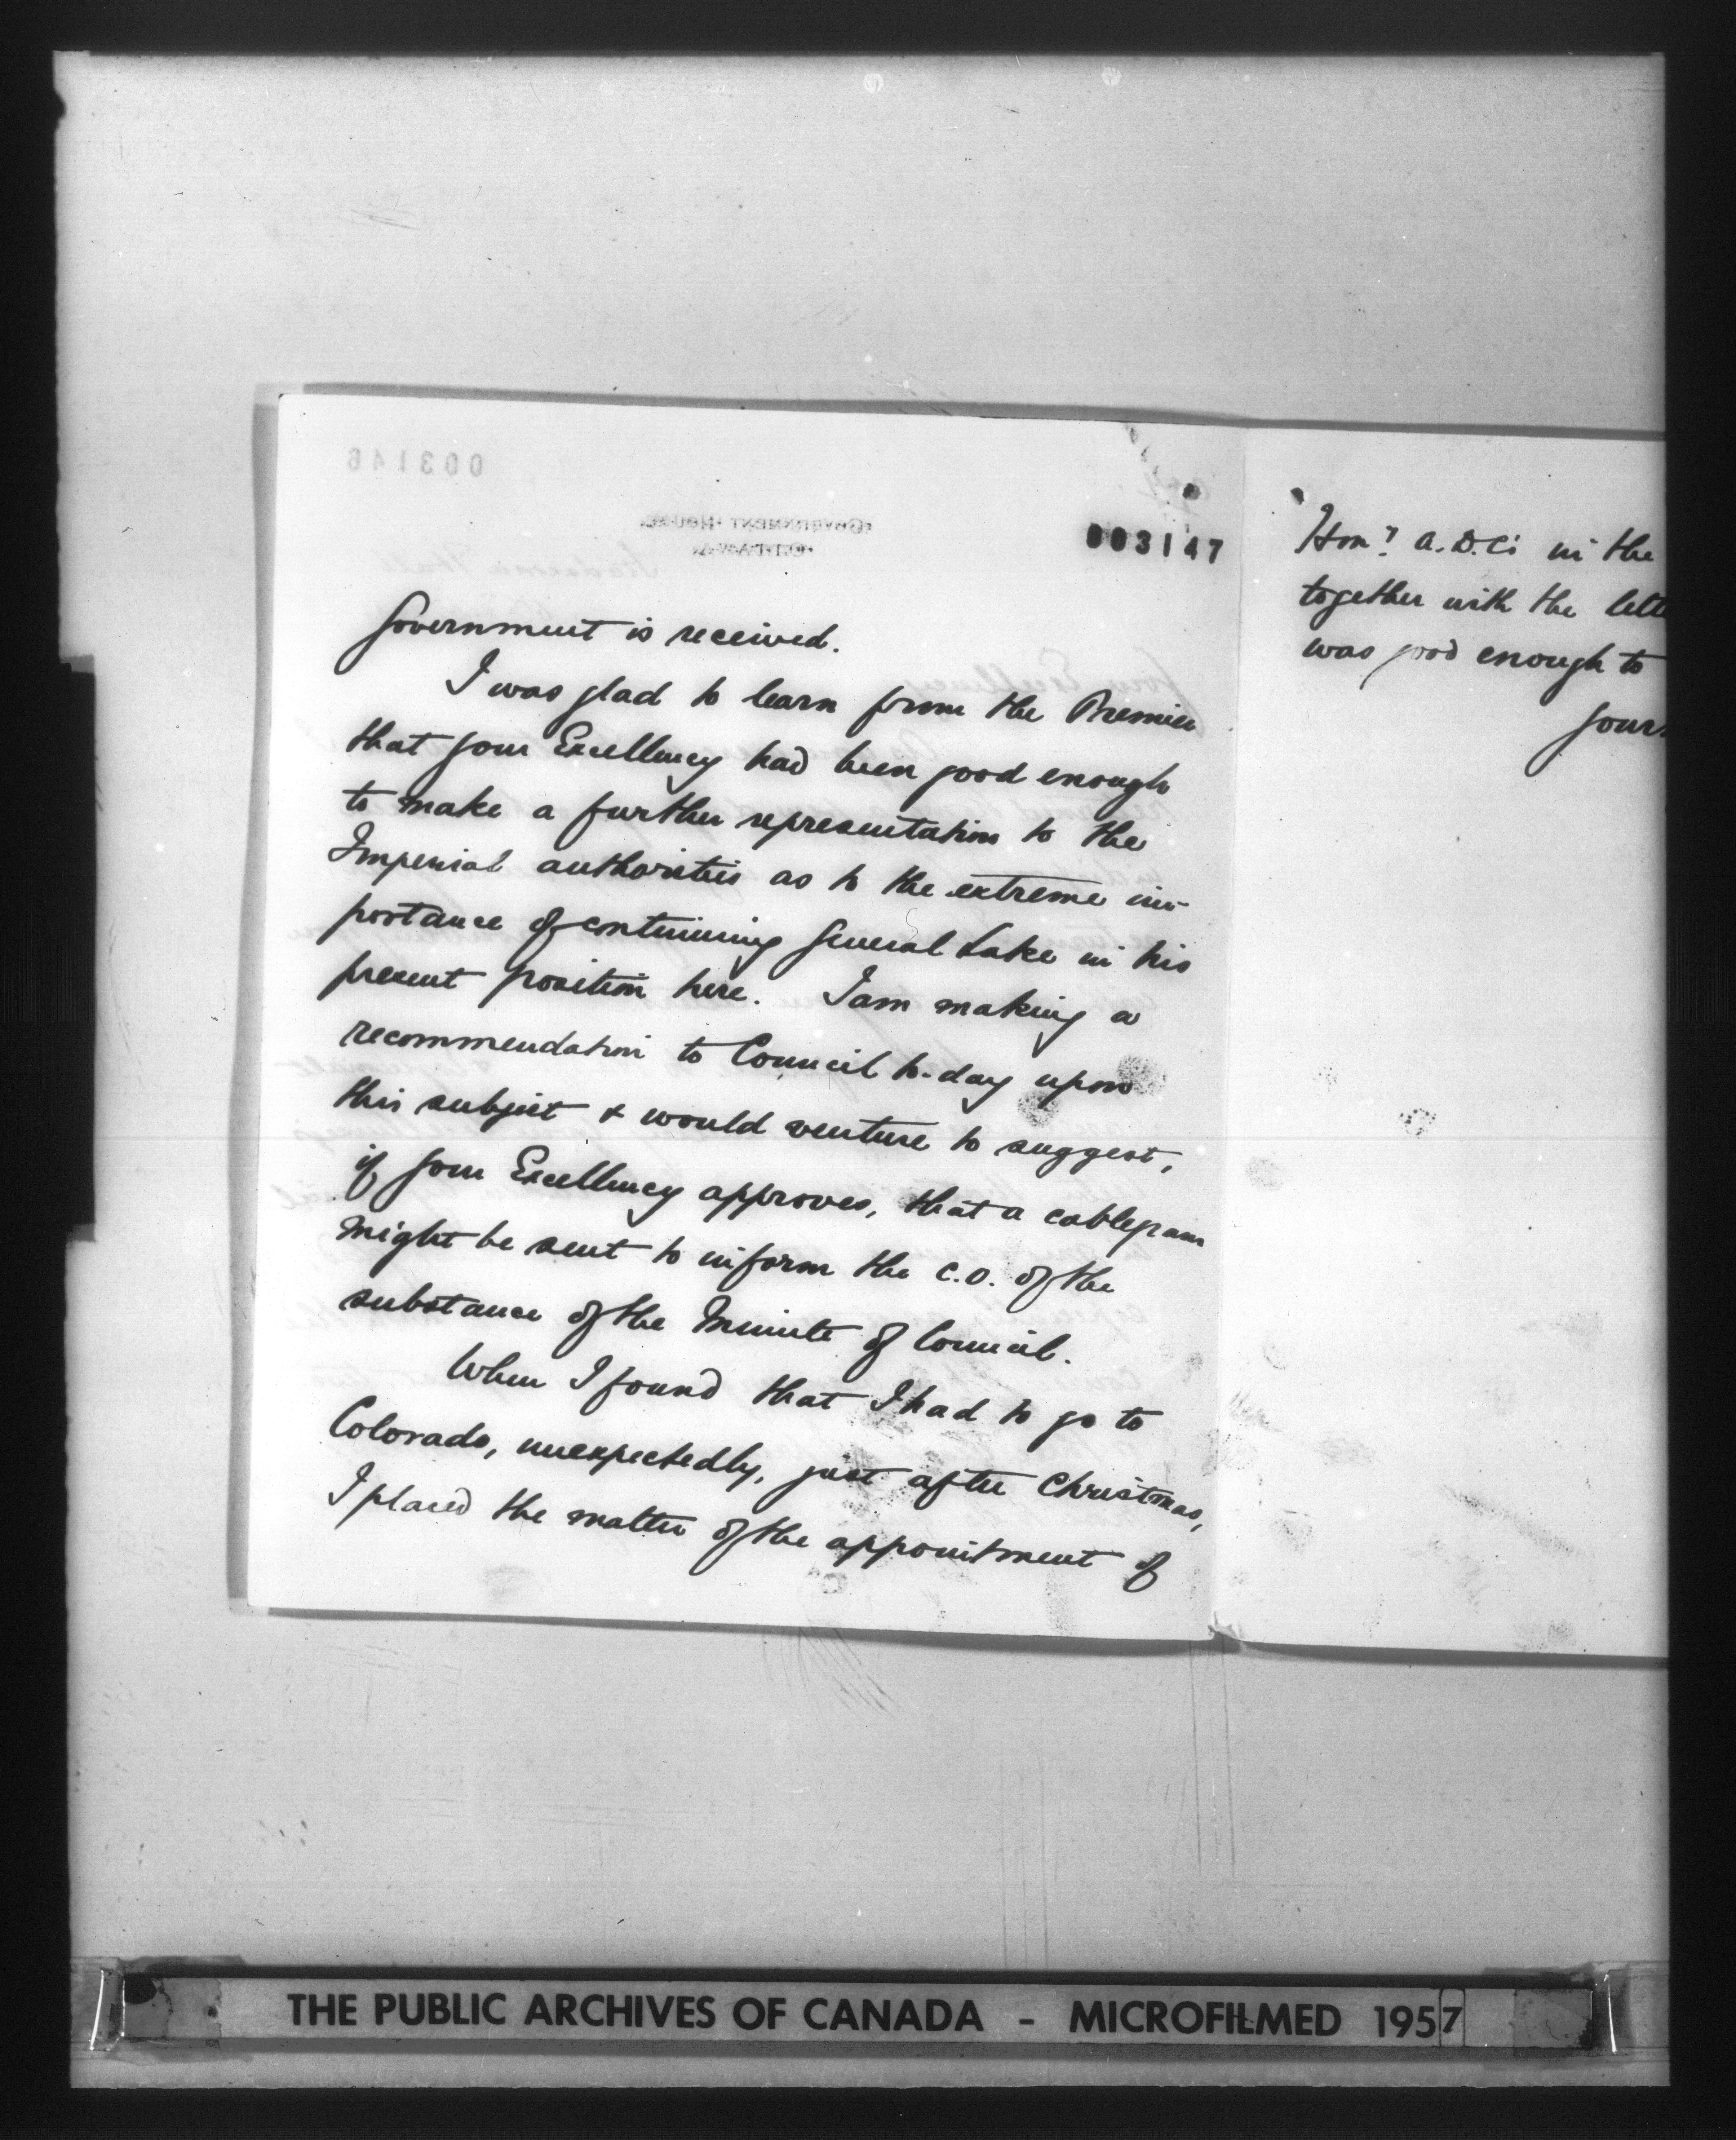 003147
Government is received.
I was glad to learn from the Premier
that your Excellency had been good enough
to make a further representation to the
Imperial authorities as to the extreme im-
portance of continuing General Lake in his
present position here. I am making a
recommendation to Council to-day upon
this subject & would venture to suggest,
if your Excellency approves, that a cablegram
might be sent to inform the C.O. of the
substance of the Minute of Council.
When I found that I had to go to
Colorado, unexpectedly, just after Christmas,
I placed the matter of the appointment of
Hon? A.D.C's in the
together with the lette
was good enough to
Your
003146
GOVERNMENT HOUSE
OTTAWA
THE PUBLIC ARCHIVES OF CANADA - MICROFILMED 1957